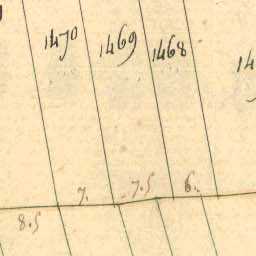 1470 1469 1468 14
7. 7.5 6.
8.5